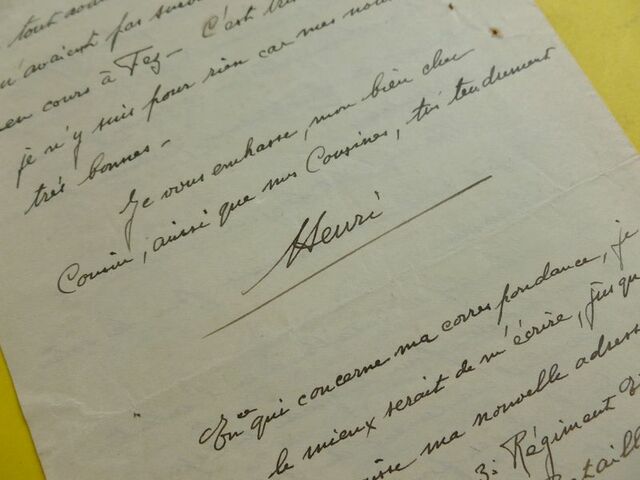 tout
n'avaient pas
en cours à Fez - C'est très
je n'y suis pour rien car mes
très bonnes -
Je vous embrasse, mon bien cher
Cousin, ainsi que mes Cousines, très tendrement
Henri
En ce qui concerne ma correspondance, je
le mieux serait de m'écrire, jusqu
ma nouvelle adress
3e Régiment
Bataill